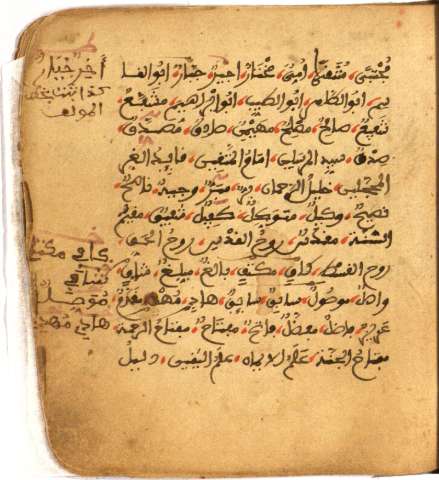 مجتبى منتقى أمي مختار أجير جبار أبو القا
سم أبو الطاهر أبو الطيب أبو إبراهيم مشفع
شفيع صالح مصلح مهيمن صادق مصدق
صدق سيد المرسلين إمام المتقين قايد الغر
المحجلين خليل الرحمان بر مبر وجيه ناصح
نصيح وكيل متوكل كفيل شفيق مقيم
السنة مقدس روح القدس روح الحق
روح القسط كاف مكتف بالغ مبلغ شاف
واصل موصول سابق سايق هاد مهد مقدم
عزيز فاضل مفضل فاتح مفتاح مفتاح الرحمة
مفتاح الجنة علم الإيمان علم اليقين دليل
أخير خيار
كذا ثبت بخط
المولف
كافي
شافي
هادي